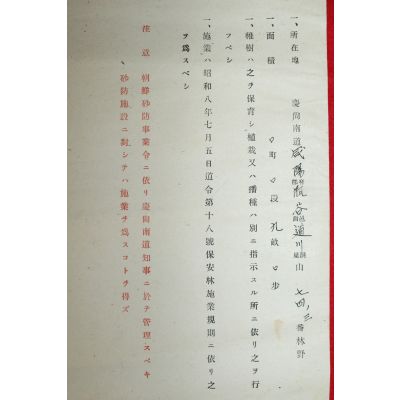 一、所在地
慶尙南道咸陽郡甁谷面道川里山七四ノ三番林野
一、面積
口町口段孔畝口步
一、稚樹ハ之ヲ保育シ植栽又ハ播種ハ別ニ指示スル所ニ依リ之ヲ行
フベシ
一、施業ハ昭和八年七月五日道令第十八號保安林施業規則ニ依リ之
ヲ爲スベシ
注意 朝鮮砂防事業令ニ依リ慶尙南道知事ニ於テ管理スベキ
砂防施設ニ對シテハ施業ヲ爲スコトヲ得ズ